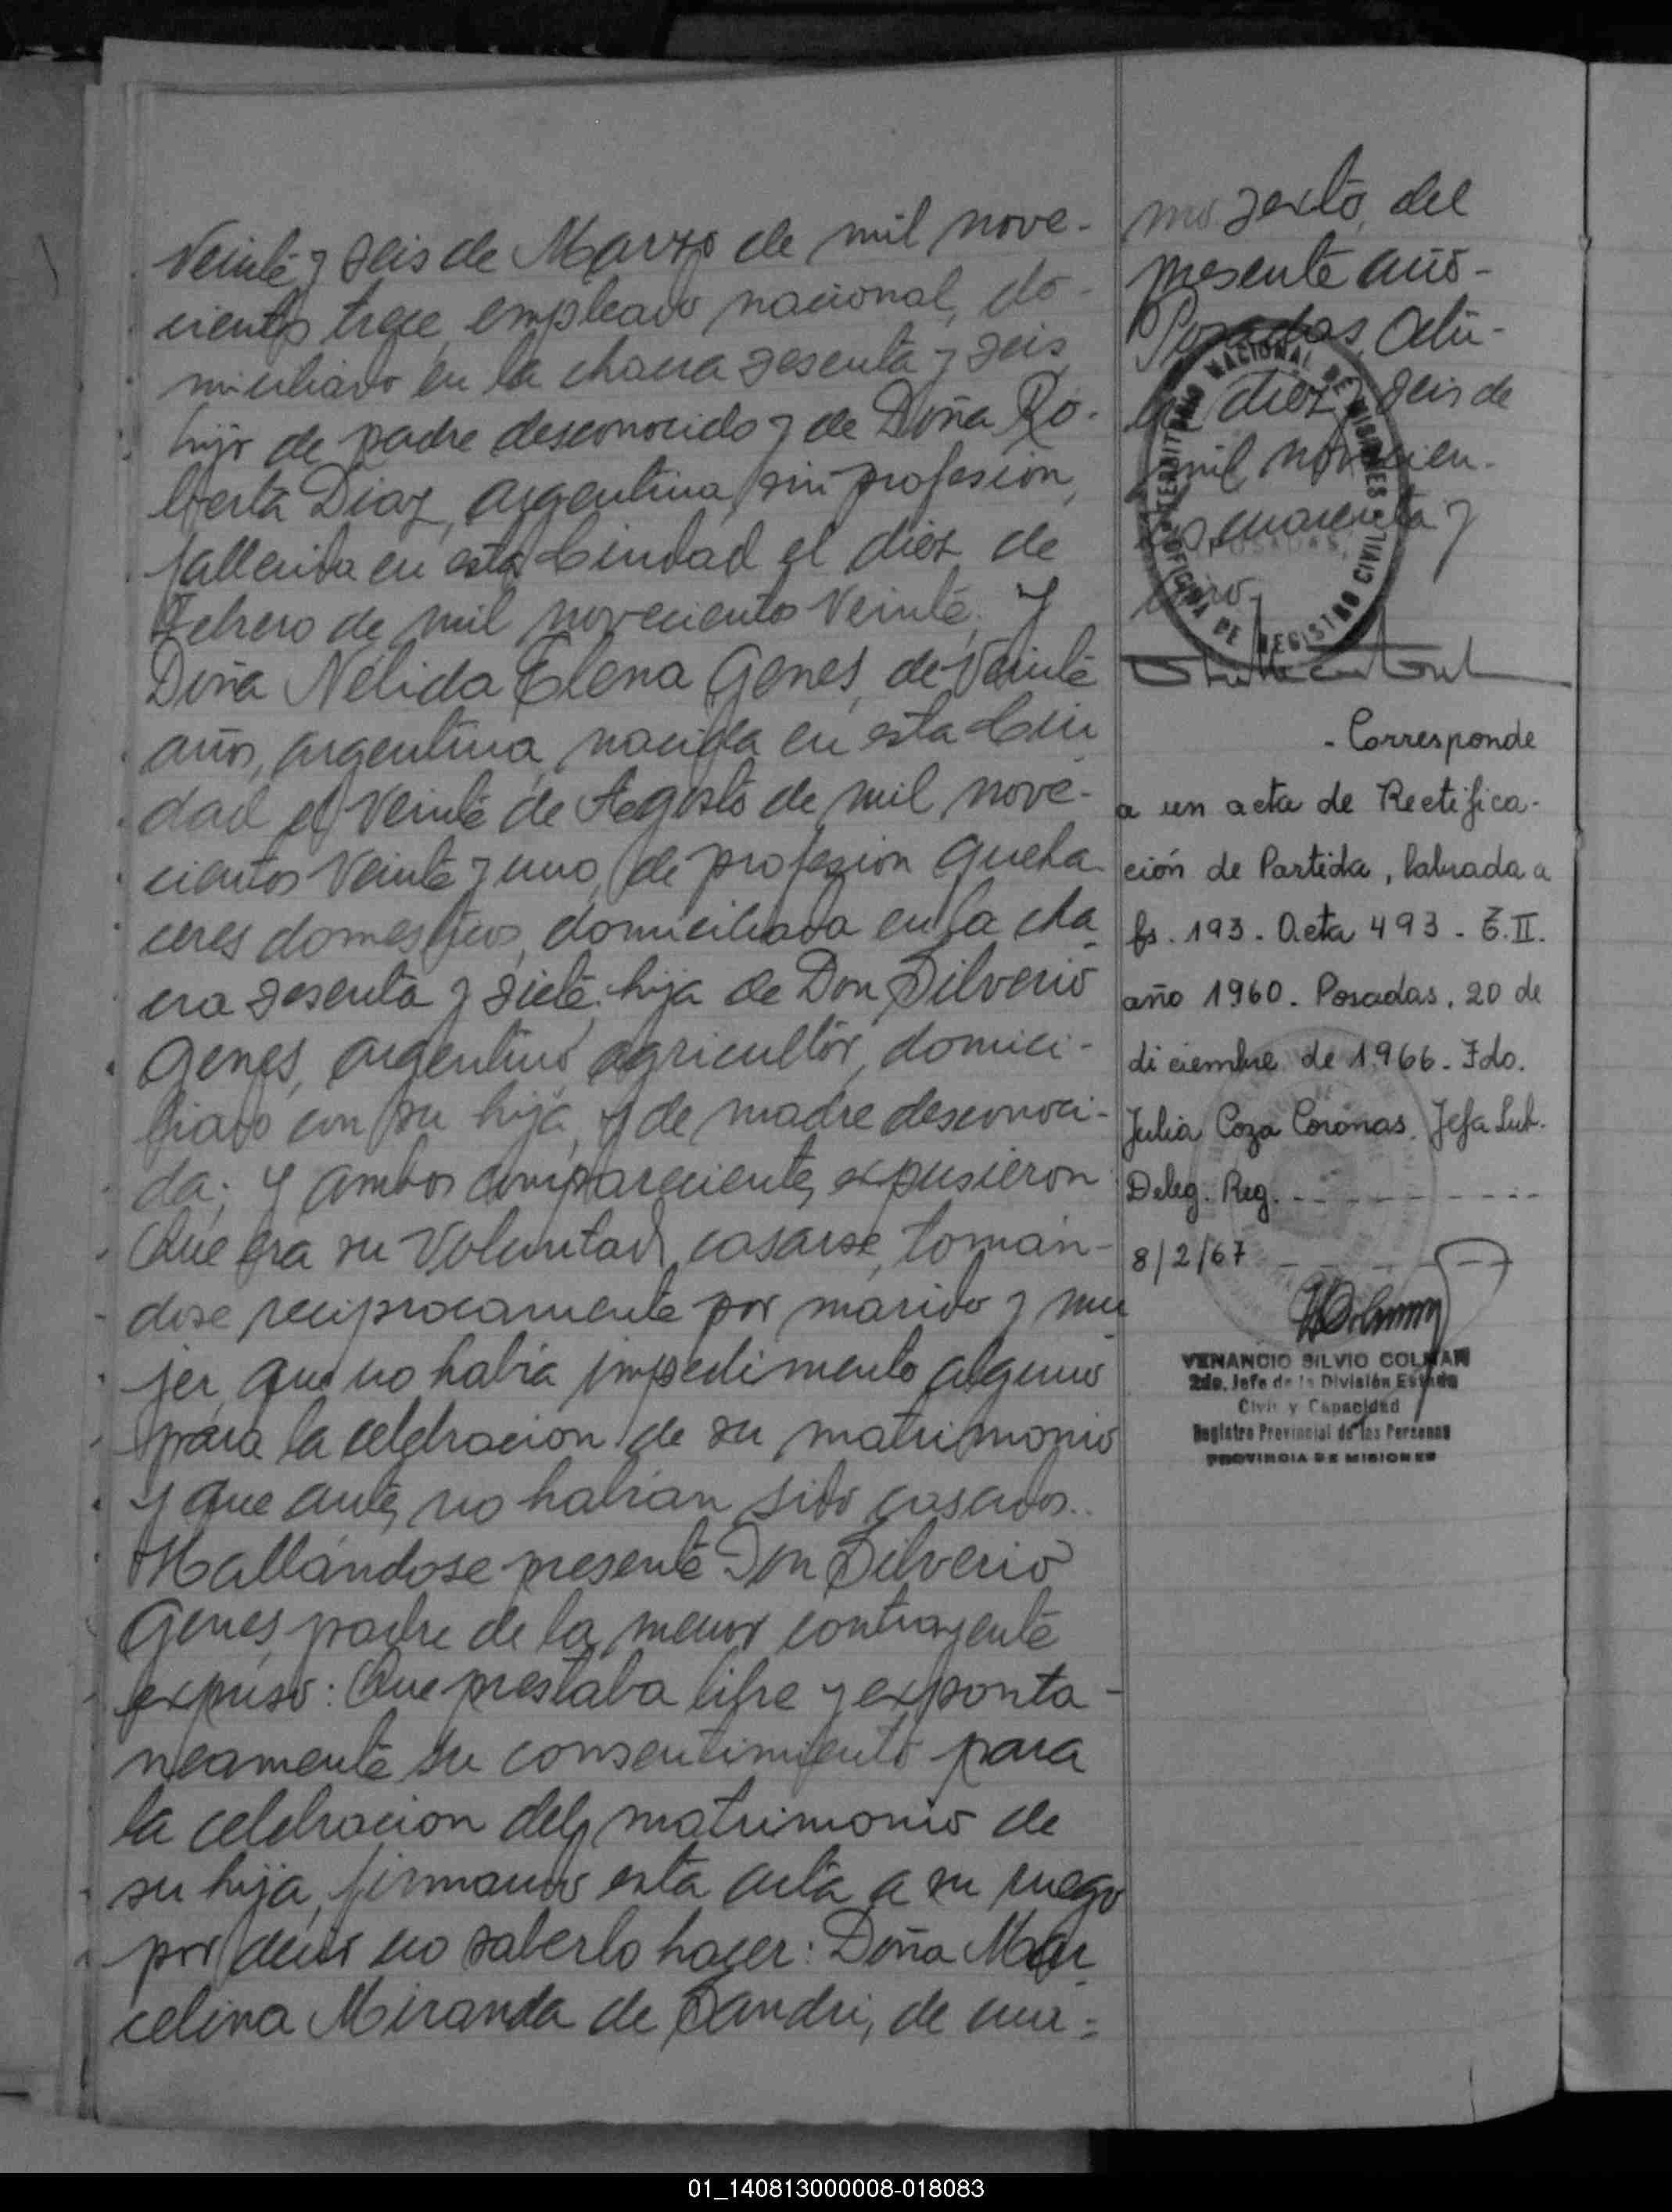 Veinte y seis de Marzo de mil nove-
cientos trece, empleado nacional, do-
miciliado en la chacra sesenta y seis,
hijo de padre desconocido y de Doña Ro-
berta Diaz, argentina, sin profesión,
fallecida en esta Ciudad el diez de
Febrero de mil novecientos veinte; Y
Doña Nélida Elena Genes, de veinte
años, argentina, nacida en esta Ciu
dad el veinte de Agosto de mil nove-
cientos veinte y uno, de profesion queha
ceres domesticos, domiciliada en la cha
cra sesenta y siete, hija de Don Silverio
Genes, argentino, agricultor, domici-
liado con su hija, y de madre desconoci-
da; Y ambos comparecientes expusieron
Que era su voluntad casarse, tomán-
dose reciprocamente por marido y mu
jer, que no habia impedimento alguno
para la celebracion de su matrimonio
y que antes no habían sido casados.
Hallándose presente Don Silverio
Genes, padre de la menor contrayente
expuso: Que prestaba libre y exponta-
neamente su consentimiento para
la celebracion del matrimonio de
su hija, firmando esta acta a su ruego
por decir no saberlo hacer: Doña Mar
celina Miranda de Sandri, de cua=
mo sexto, del
presente año-
Posadas, Octu-
bre diez y seis de
mil novecien-
tos cuarenta y
TERRITORIO NACIONAL DE MISIONES
POSADAS
OFICINA DE REGISTRO CIVIL
- Corresponde
a un acta de Rectifica-
ción de Partida, labrada a
fs. 193. Acta 493 - T. II.
año 1960. Posadas, 20 de
diciembre de 1966. Fdo.
Julia Coza Coronas. Jefa Sub.
Deleg. Reg. - - - - - - - - -
8/2/67 - - - - - -
VENANCIO SILVIO COLMAN
2do. Jefe de la División Estado
Civil y Capacidad
Registro Provincial de las Personas
PROVINCIA DE MISIONES
01_140813000008-018083